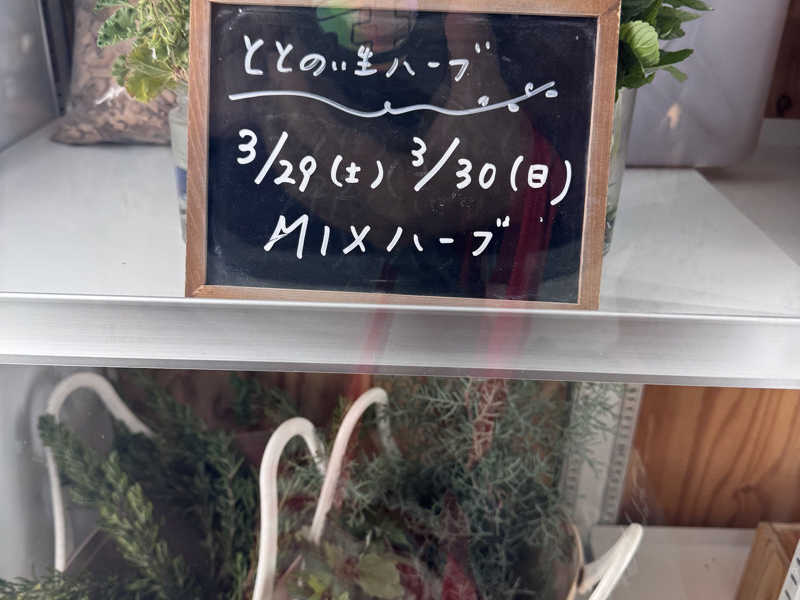 ととのい生ハーブ
3/29(土) 3/30(日)
MIXハーブ